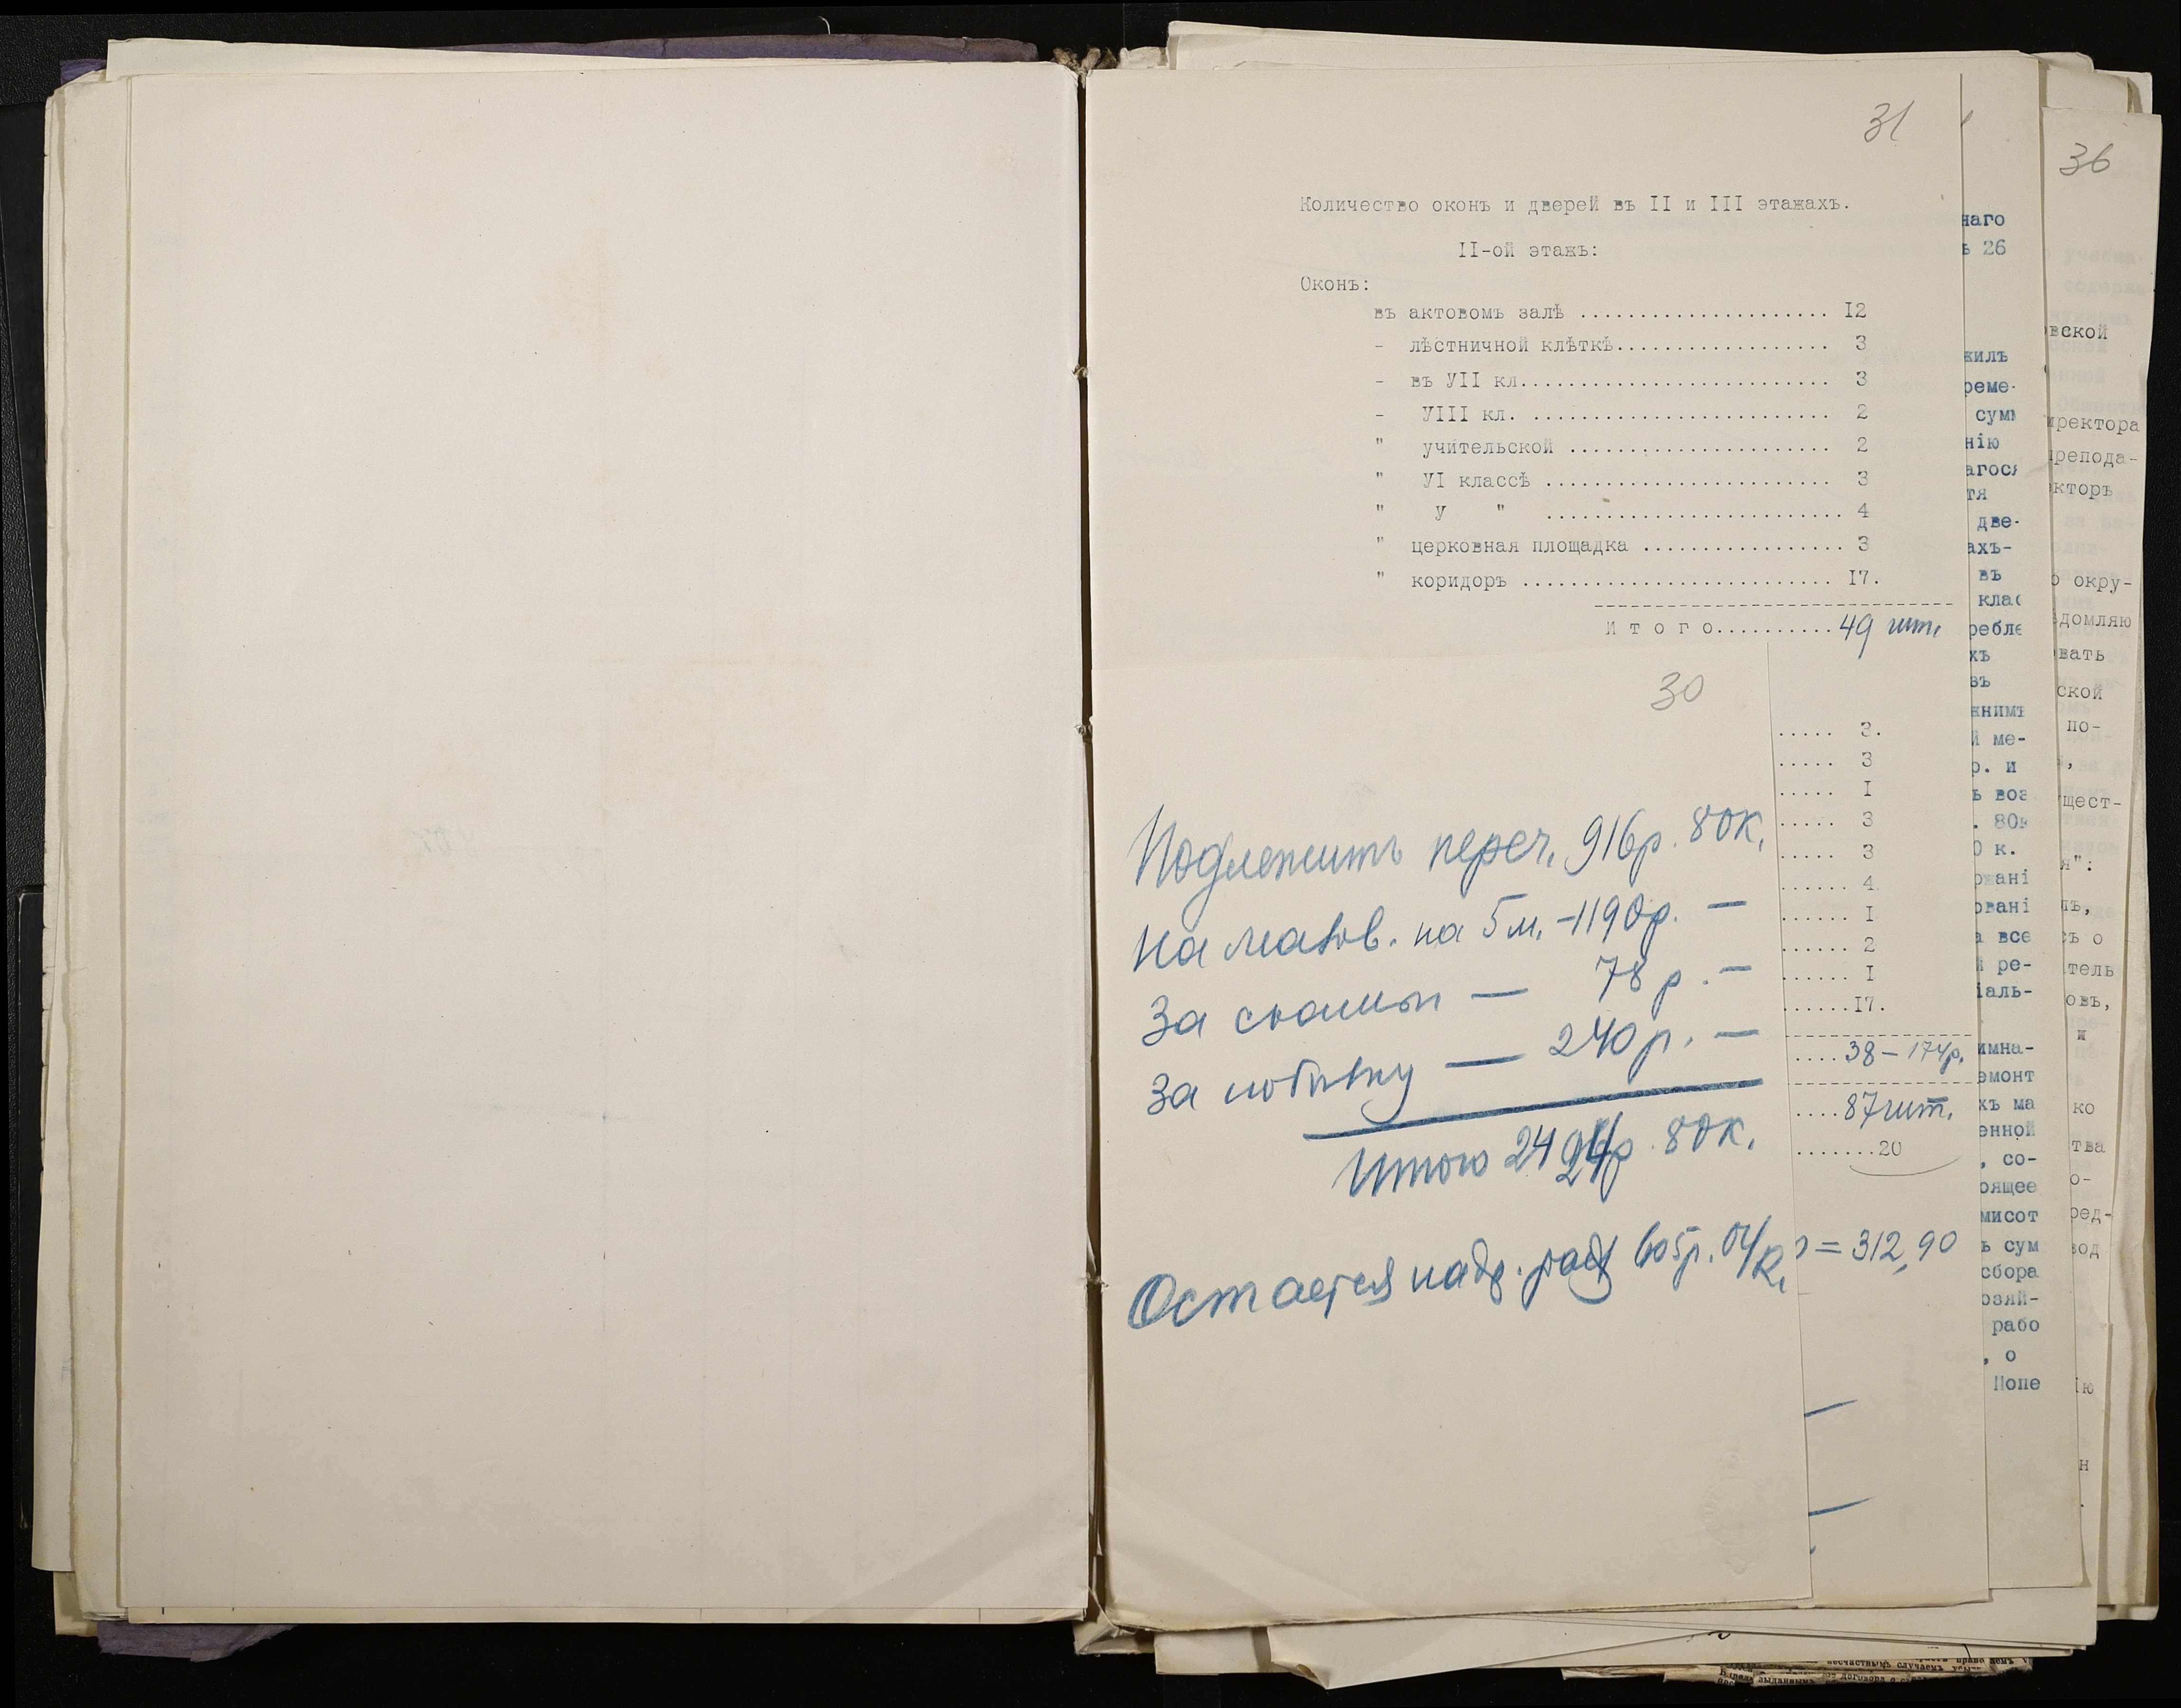 31
Количество оконъ и дверей въ II и III этажахъ.
II-ой этажъ:
Оконъ:
въ актовомъ залѣ ..................... I2
- лѣстничной клѣткѣ.................. 3
- въ УII кл.......................... 3
- УIII кл. ......................... 2
" учительской ...................... 2
" УI классѣ ........................ 3
" У " ......................... 4
" церковная площадка ................. 3
" коридоръ .......................... I7.
И т о г о.......... 49 шт.
30
Подлежитъ переч. 916р. 80к.
на жалов. на 5 м. - 1190р. —
за скамьи — 78 р. —
за побѣлку — 240 р. —
Итого 2424р 80к.
Остается 605р. 04/к.
..... 3.
..... 3
..... I
..... 3
..... 3
...... 4
...... I
...... 2
...... I
......I7.
.... 38 - 174р.
.... 87 шт.
.......20
= 312,90
наго
ъ 26
жилъ
реме-
сумм
нію
агося
тя
две-
ахъ-
въ
клас
ребле
хъ
въ
жнимъ
й ме-
р. и
ъ воз
. 80к
0 к.
ржані
овані
а все
й ре-
іаль-
имна-
емонт
хъ ма
енной
, со-
оящее
мисот
ъ сум
сбора
озяй-
рабо
, о
Попе
36
вской
иректора
препода-
кторъ
о окру-
домляю
вать
ской
по-
ущест-
я":
ъ о
тель
овъ,
и
ко
тва
о-
ред-
вод
ію
н
несчастнымъ случаемъ